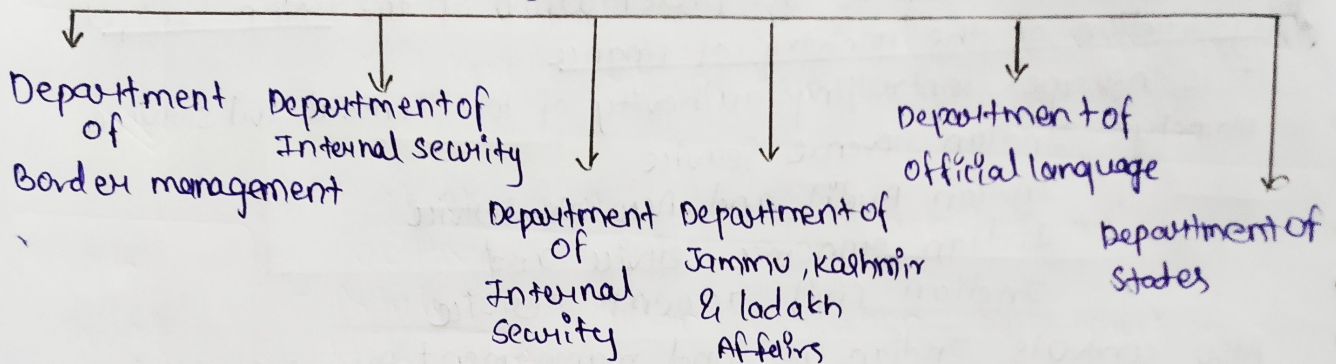 Department
of
Border management
Department of
Internal security
Department
of
Internal
security
Department of
Jammu, Kashmir
& ladakh
Affairs
Department of
official language
Department of
states